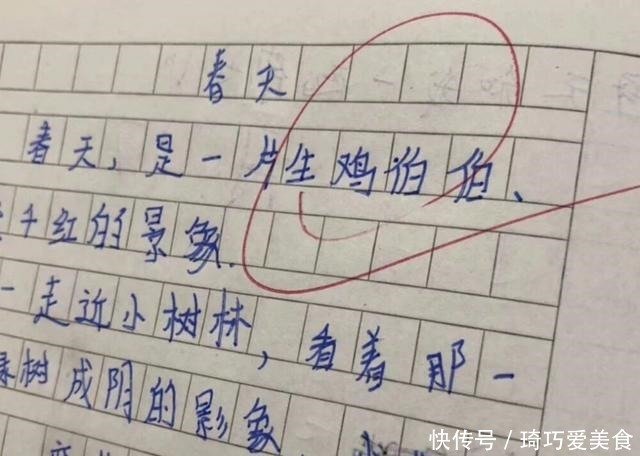 春天
春天,是一片生鸡伯伯、
千红的景象.
一走近小树林,看着那一
树成阴的影象
快传号/琦巧爱美食